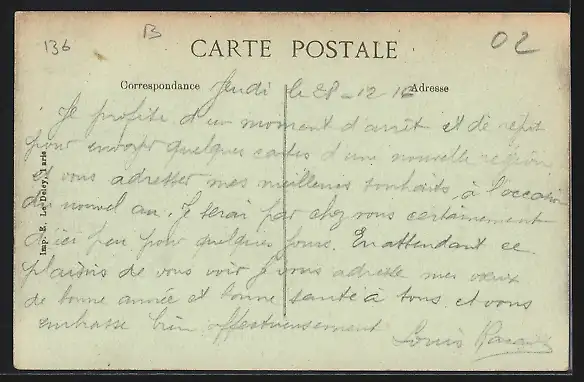 136
B
02
CARTE POSTALE
Correspondance
Adresse
Jeudi le 28-12-16
Je profite d'un moment d'arrêt et de répit
pour envoyer quelques cartes d'une nouvelle région
et vous adresser mes meilleurs souhaits à l'occasion
du nouvel an. Je serai par chez vous certainement
d'ici peu pour quelques jours. En attendant ce
plaisir de vous voir je vous adresse mes vœux
de bonne année et bonne santé à tous et vous
embrasse bien affectueusement
Louis
Imp. E. Le Deley, Paris